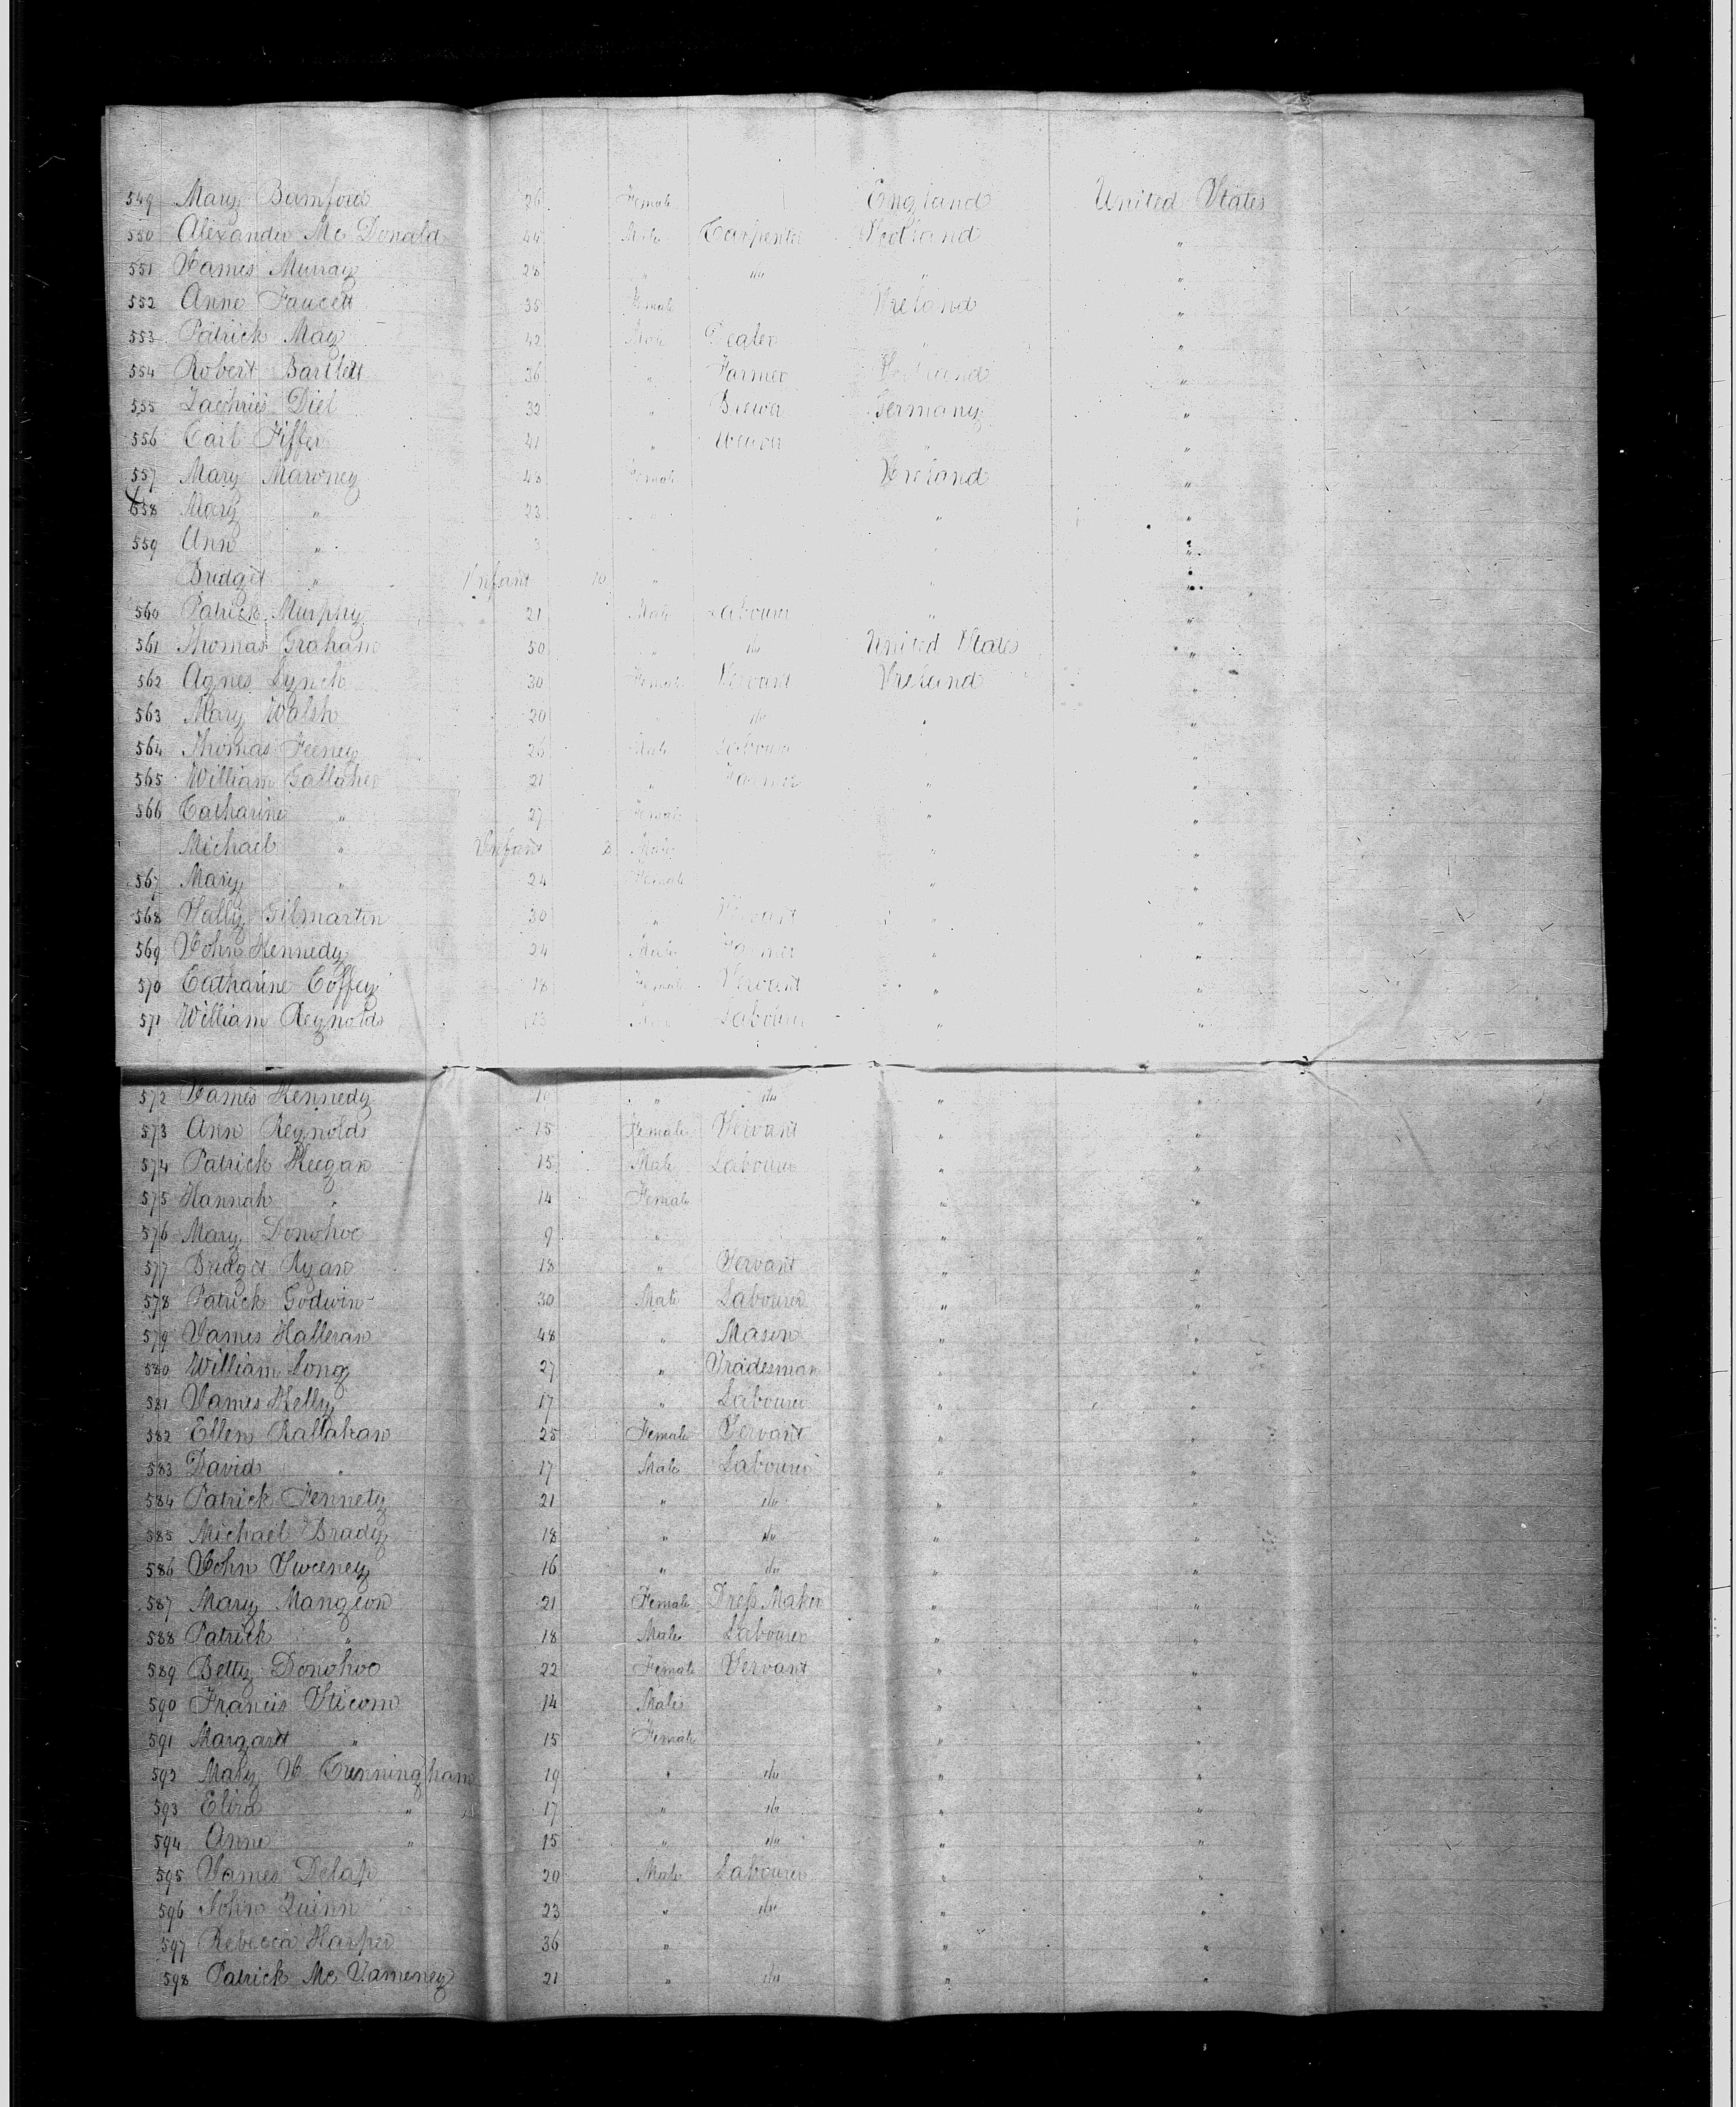 549 Mary Bamford 26 Female England United States
550 Alexander Mc Donald 44 Male Carpenter Scotland "
551 James Murray 28 " do " "
552 Anne Faucett 35 Female Ireland "
553 Patrick May 42 Male Dealer " "
554 Robert Bartlett 36 " Farmer "
555 Zachries Diel 32 " Brewer Germany "
556 Carl Fiffer 41 " Weaver " "
557 Mary Maroney 48 Female Ireland "
558 Mary " 23 " " "
559 Ann " 3 " " "
Bridget " Infant 10 " " "
560 Patrick Murphy 21 Male Labourer " "
561 Thomas Graham 50 " do United States "
562 Agnes Lynch 30 Female Servant Ireland "
563 Mary Walsh 20 " do " "
564 Thomas Feeney 26 Male Labourer " "
565 William Gallaher 21 " Farmer " "
566 Catharine " 27 Female " "
Michael " Infant Male " "
567 Mary " 24 Female " "
568 Sally Gilmartin 30 " Servant " "
569 John Kennedy 24 Male Farmer " "
570 Catharine Coffey 18 Female Servant " "
571 William Reynolds 23 Male Labourer " "
572 James Kennedy " do " "
573 Ann Reynolds 15 Female Servant " "
574 Patrick Keegan 15 Male Labourer " "
575 Hannah " 14 Female " "
576 Mary Donohoe 9 " " "
577 Bridget Ryan 18 " Servant " "
578 Patrick Godwin 30 Male Labourer " "
579 James Halleran 48 " Mason " "
580 William Long 27 " Tradesman " "
581 James Kelly 17 " Labourer " "
582 Ellen Callahan 25 Female Servant " "
583 David " 17 Male Labourer " "
584 Patrick Fennety 21 " do " "
585 Michael Brady 18 " do " "
586 John Sweeney 16 " do " "
587 Mary Mangeon 21 Female Dress Maker " "
588 Patrick " 18 Male Labourer " "
589 Betty Donohoe 22 Female Servant " "
590 Francis Sticom 14 Male " "
591 Margaret " 15 Female " "
592 Mary J Cunningham 19 " do " "
593 Eliza " 17 " do " "
594 Anne " 15 " do " "
595 James Delap 20 Male Labourer " "
596 John Quinn 23 " do " "
597 Rebecca Harper 36 " " "
598 Patrick Mc Vameney 21 " do " "